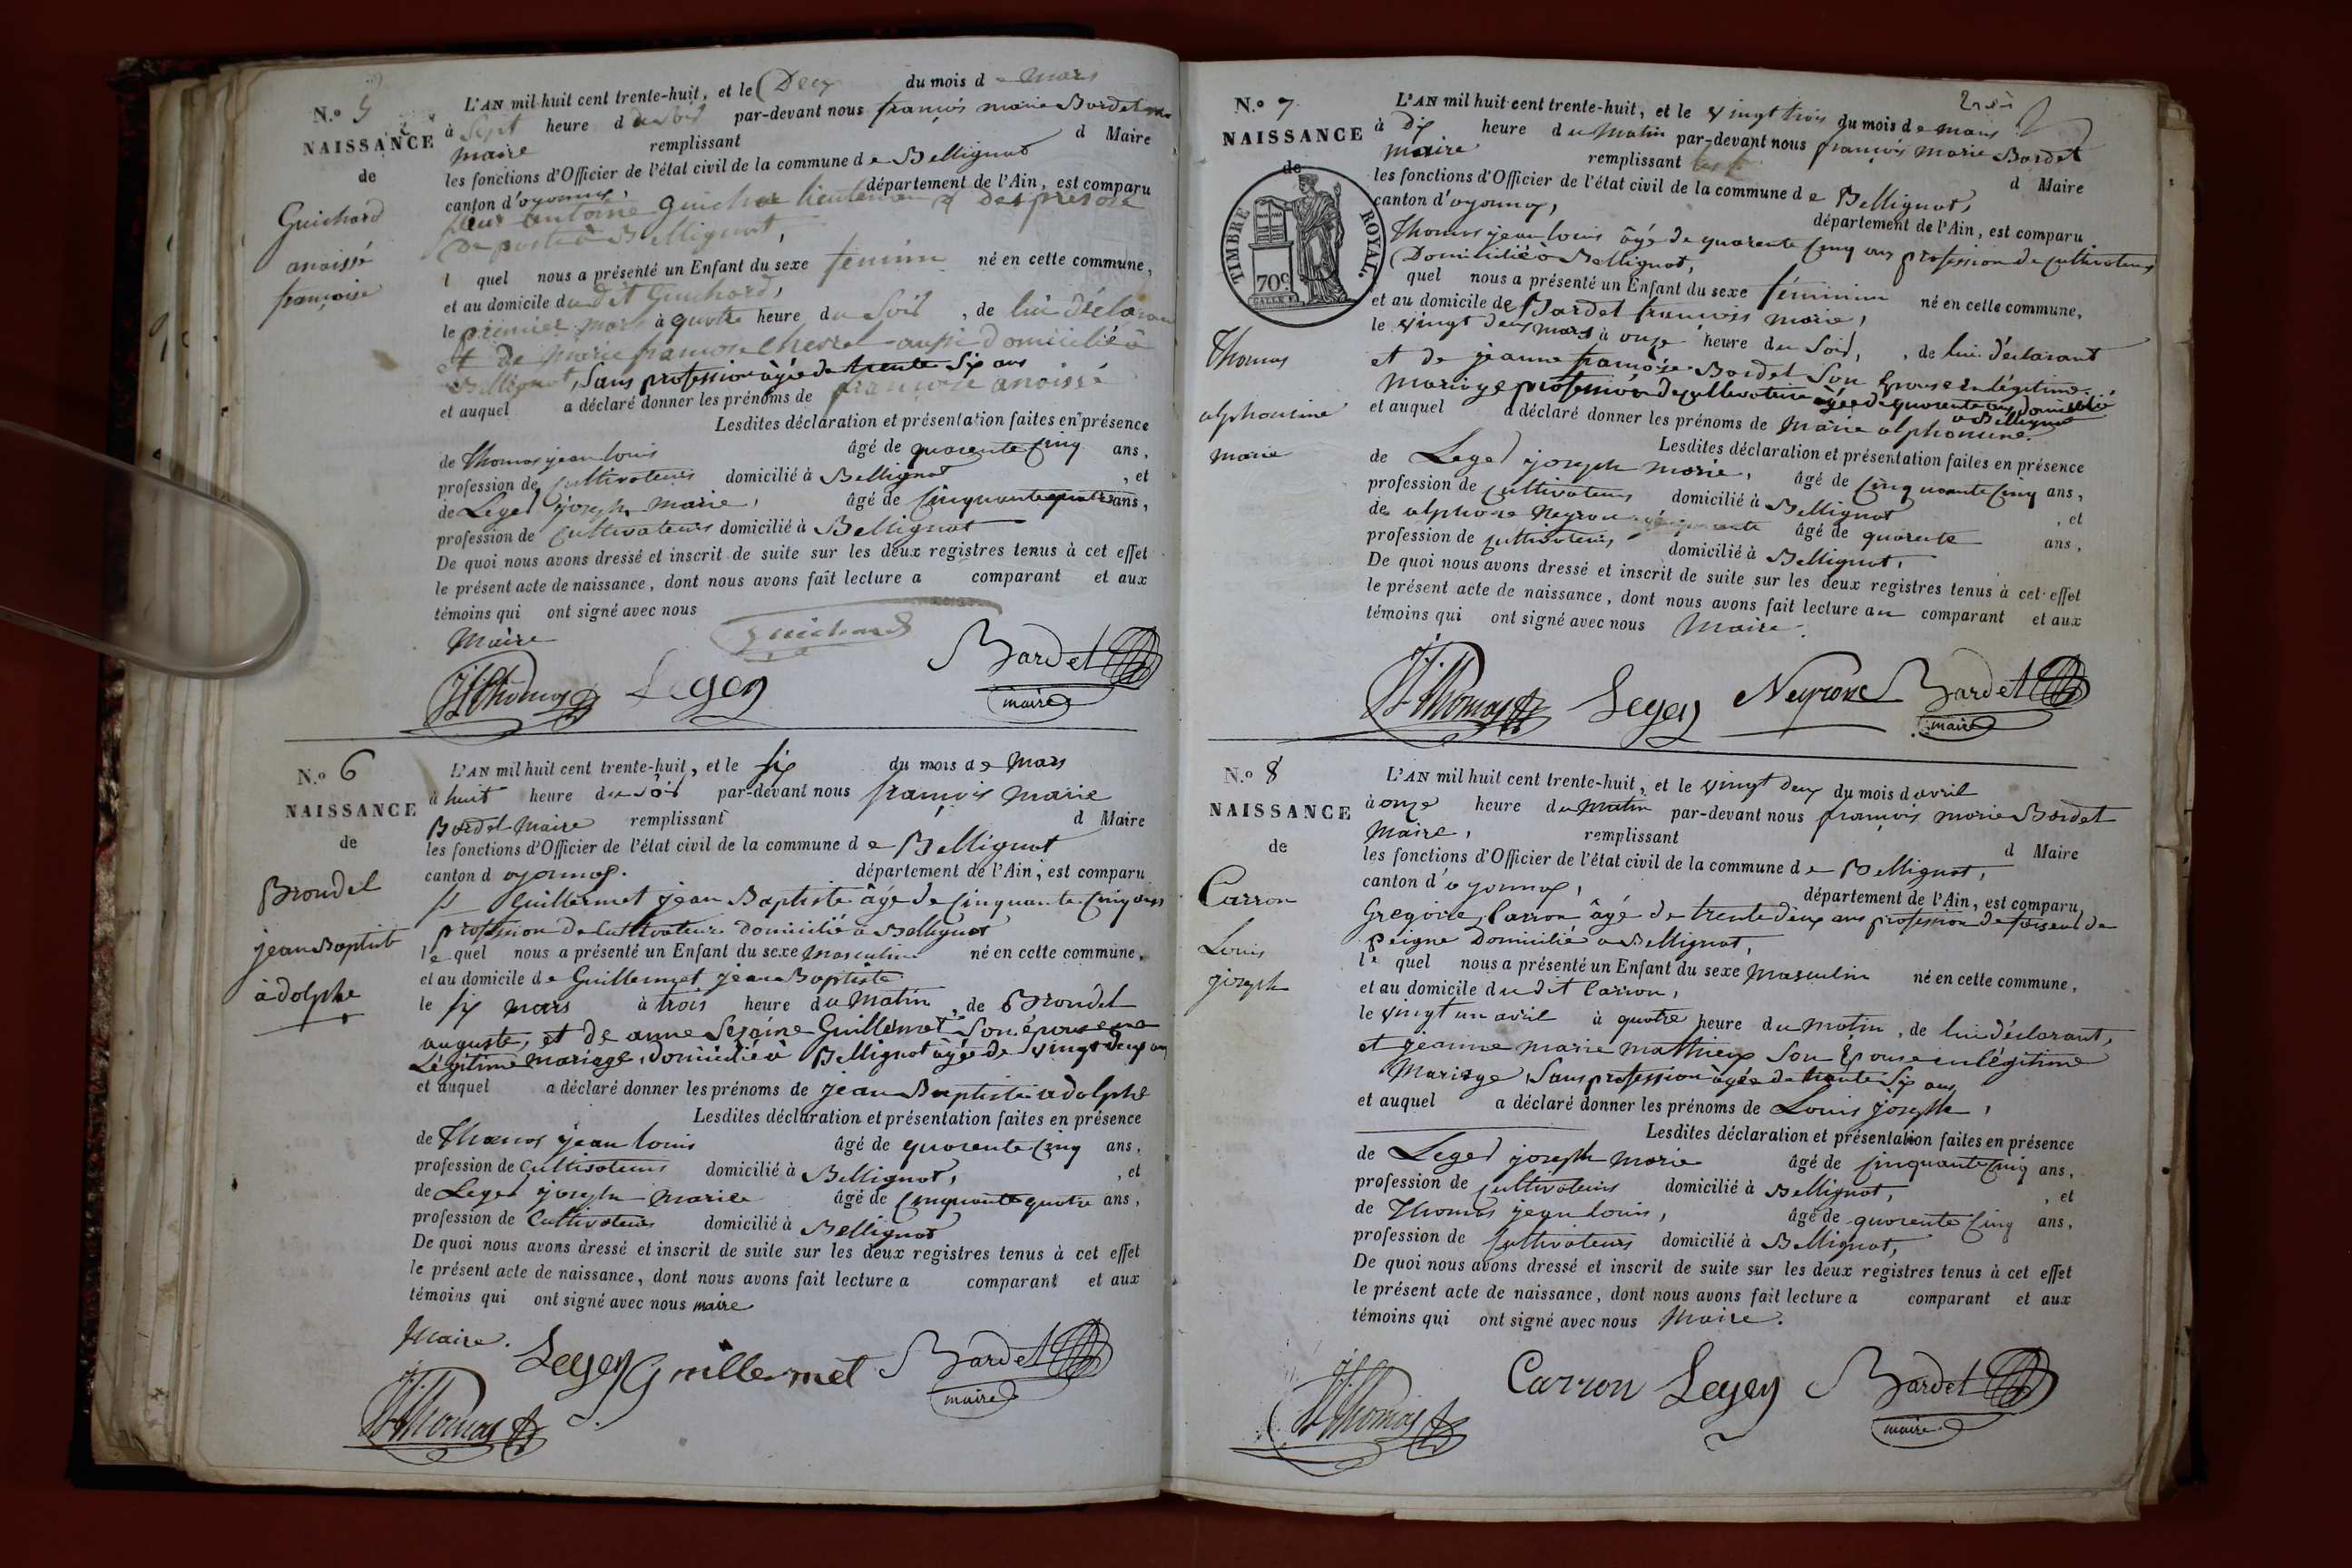 N.o 5
NAISSANCE
de
Guichard
anaissé
françoise
L'AN mil huit cent trente-huit, et le Deux du mois de mars
à Sept heure du Soir par-devant nous françois marie Bardet
maire remplissant d Maire
les fonctions d'Officier de l'état civil de la commune de Bellignat
canton d'oyonnax, département de l'Ain, est comparu
antoine guichar lieutenan
Bellignat,
l quel nous a présenté un Enfant du sexe féminin né en cette commune,
et au domicile du dit Guichard,
le premier mars à quatre heure du Soir, de lui déclaran
et de marie françoise aussi domicilié à
Bellignat, Sans profession âgée de trente Six ans
et auquel a déclaré donner les prénoms de françoise anaissé
Lesdites déclaration et présentation faites en présence
de Thomas jean louis âgé de quarente Cinq ans,
profession de Cultivateurs domicilié à Bellignat, et
de Leger joseph marie, âgé de Cinquante quatre ans,
profession de Cultivateurs domicilié à Bellignat
De quoi nous avons dressé et inscrit de suite sur les deux registres tenus à cet effet
le présent acte de naissance, dont nous avons fait lecture a comparant et aux
témoins qui ont signé avec nous
Maire
guichard
Thomas Leger Bardet
maire
N.o 6
NAISSANCE
de
Brondel
jean Baptiste
adolphe
L'AN mil huit cent trente-huit, et le six du mois de Mars
à huit heure du soir par-devant nous françois marie
Bardet Maire remplissant d Maire
les fonctions d'Officier de l'état civil de la commune de Bellignat
canton d oyonnax. département de l'Ain, est comparu
Guillermet jean Baptiste âgé de Cinquante Cinq ans
profession de Cultivateurs domicilié à Bellignat
le quel nous a présenté un Enfant du sexe masculin né en cette commune,
et au domicile de Guillermet jean Baptiste
le six mars à trois heure du Matin, de Brondel
auguste, et de anne Guillermet Son épouse en
Légitime mariage, domicilié à Bellignat âgée de Vingt deux ans
et auquel a déclaré donner les prénoms de jean Baptiste adolphe
Lesdites déclaration et présentation faites en présence
de Thomas jean louis âgé de quarente Cinq ans,
profession de Cultivateurs domicilié à Bellignat, et
de Leger joseph Marie âgé de Cinquante quatre ans,
profession de Cultivateurs domicilié à Bellignat
De quoi nous avons dressé et inscrit de suite sur les deux registres tenus à cet effet
le présent acte de naissance, dont nous avons fait lecture a comparant et aux
témoins qui ont signé avec nous maire
Maire.
Leger Guillermet Bardet
maire
Thomas
N.o 7
NAISSANCE
de
TIMBRE ROYAL.
70c
Thomas
alphonsine
marie
L'AN mil huit cent trente-huit, et le vingt trois du mois de mars
à Dix heure du Matin par-devant nous françois Marie Bardet
Maire remplissant d Maire
les fonctions d'Officier de l'état civil de la commune de Bellignat,
canton d'oyonnax, département de l'Ain, est comparu
Thomas jean louis âgé de quarente Cinq ans profession de Cultivateurs
Domicilié à Bellignat,
quel nous a présenté un Enfant du sexe féminin né en cette commune,
et au domicile de Bardet francois marie,
le vingt deux mars à onze heure du Soir, de lui déclarant
et de jeanne françoise Bardet Son Epouse en légitime
Mariage profession de cultivateurs âgée de quarente ans domicilié
a Bellignat
et auquel a déclaré donner les prénoms de Marie alphonsine.
Lesdites déclaration et présentation faites en présence
de Leger joseph Marie, âgé de Cinquante Cinq ans,
profession de Cultivateurs domicilié à Bellignat, et
de alphonse Neyron âgé de quarente ans,
profession de Cultivateurs domicilié à Bellignat,
De quoi nous avons dressé et inscrit de suite sur les deux registres tenus à cet effet
le présent acte de naissance, dont nous avons fait lecture au comparant et aux
témoins qui ont signé avec nous Maire.
Thomas Leger Neyron Bardet
maire
N.o 8
NAISSANCE
de
Carron
Louis
joseph
L'AN mil huit cent trente-huit, et le vingt deux du mois d avril
à onze heure du Matin par-devant nous françois marie Bardet
Maire, remplissant d Maire
les fonctions d'Officier de l'état civil de la commune de Bellignat,
canton d'oyonnax, département de l'Ain, est comparu
Gregoire Carron âgé de trente deux ans profession de faiseur de
peigne Domicilié a Bellignat,
le quel nous a présenté un Enfant du sexe Masculin né en cette commune,
et au domicile du dit Carron,
le vingt un avril à quatre heure du Matin, de lui déclarant,
et jeanne marie Mathieux Son Epouse en légitime
Mariage, Sans profession âgée de trente Six ans,
et auquel a déclaré donner les prénoms de Louis joseph,
Lesdites déclaration et présentation faites en présence
de Leger joseph Marie âgé de Cinquante Cinq ans,
profession de Cultivateurs domicilié à Bellignat, et
de Thomas jean louis, âgé de quarente Cinq ans,
profession de Cultivateurs domicilié à Bellignat,
De quoi nous avons dressé et inscrit de suite sur les deux registres tenus à cet effet
le présent acte de naissance, dont nous avons fait lecture a comparant et aux
témoins qui ont signé avec nous Maire.
Thomas Carron Leger Bardet
maire